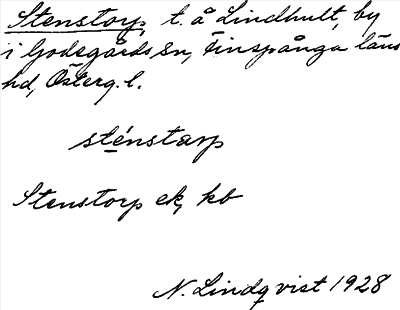 Stenstorp, t. å Lindhult, by
i Godegårds sn, Finspånga läns
hd, Österg. l.
sténstarp
Stenstorp ek, kb
N. Lindqvist 1928